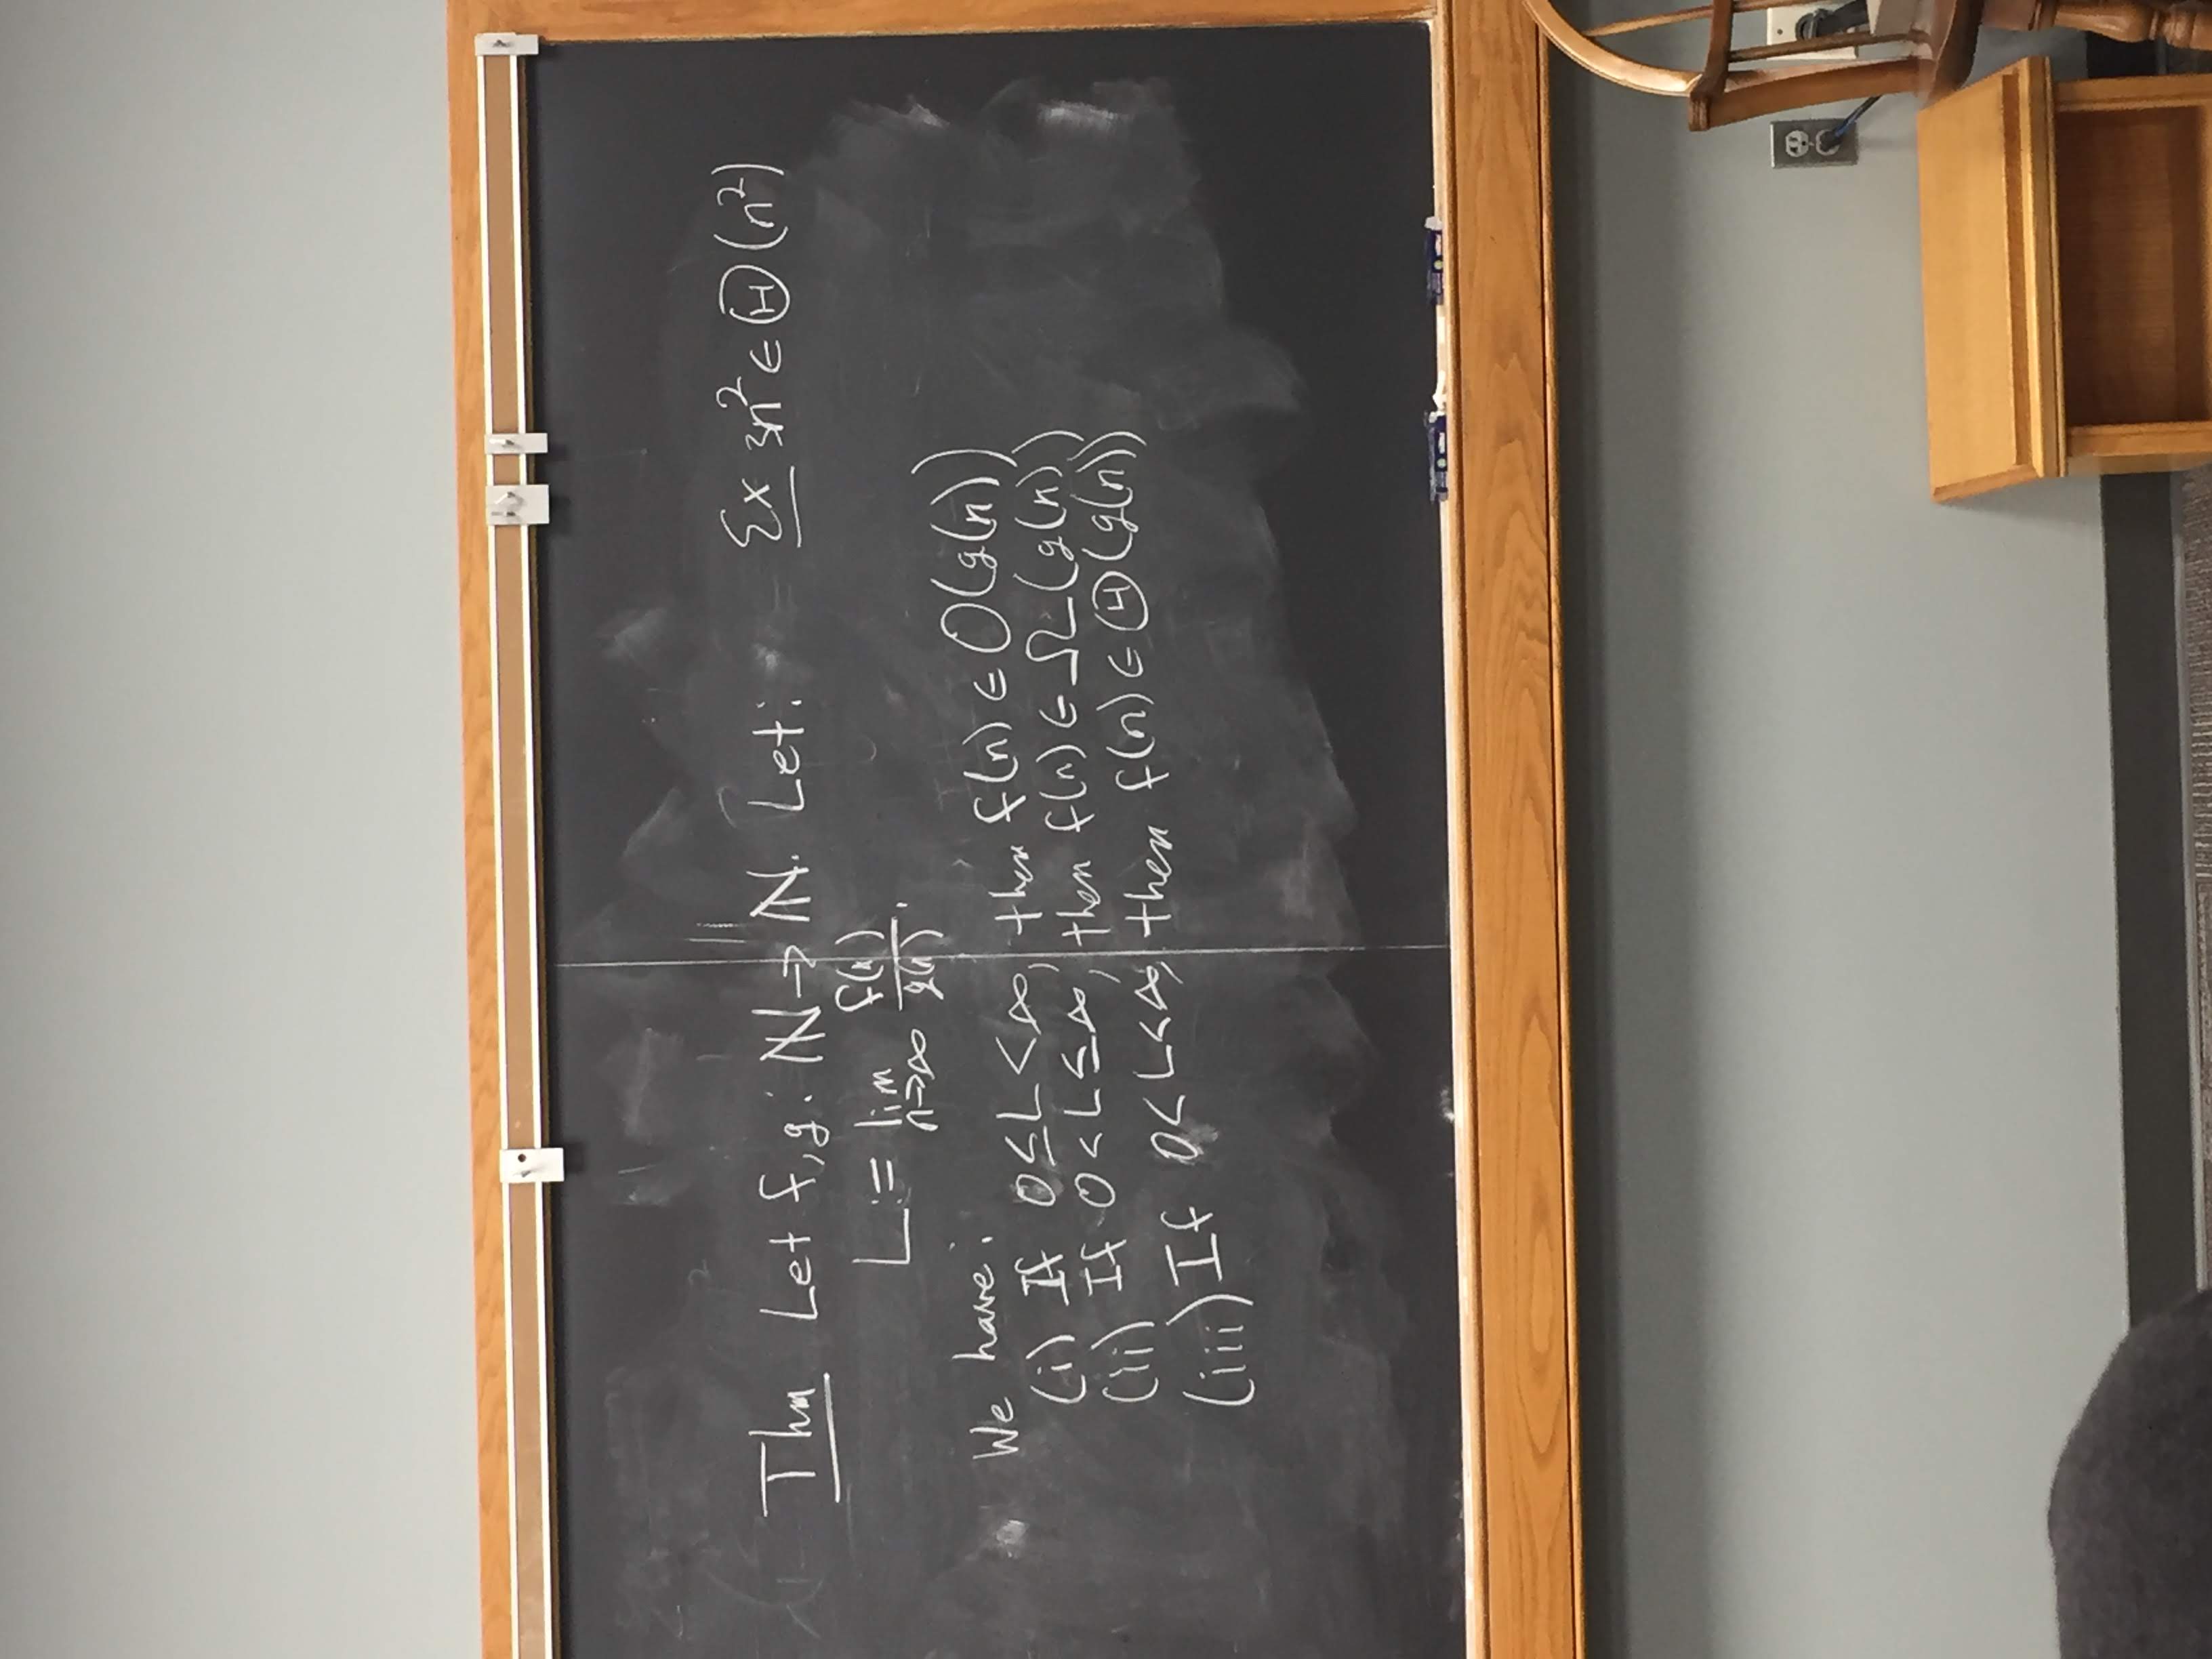 Thm Let f,g: ℕ→ℕ. Let:
L := lim n→∞ f(n)/g(n).
We have:
(i) If 0≤L<∞, then f(n) ∈ O(g(n))
(ii) If 0<L≤∞, then f(n) ∈ Ω(g(n))
(iii) If 0<L<∞, then f(n) ∈ Θ(g(n))
Ex 3n² ∈ Θ(n²)